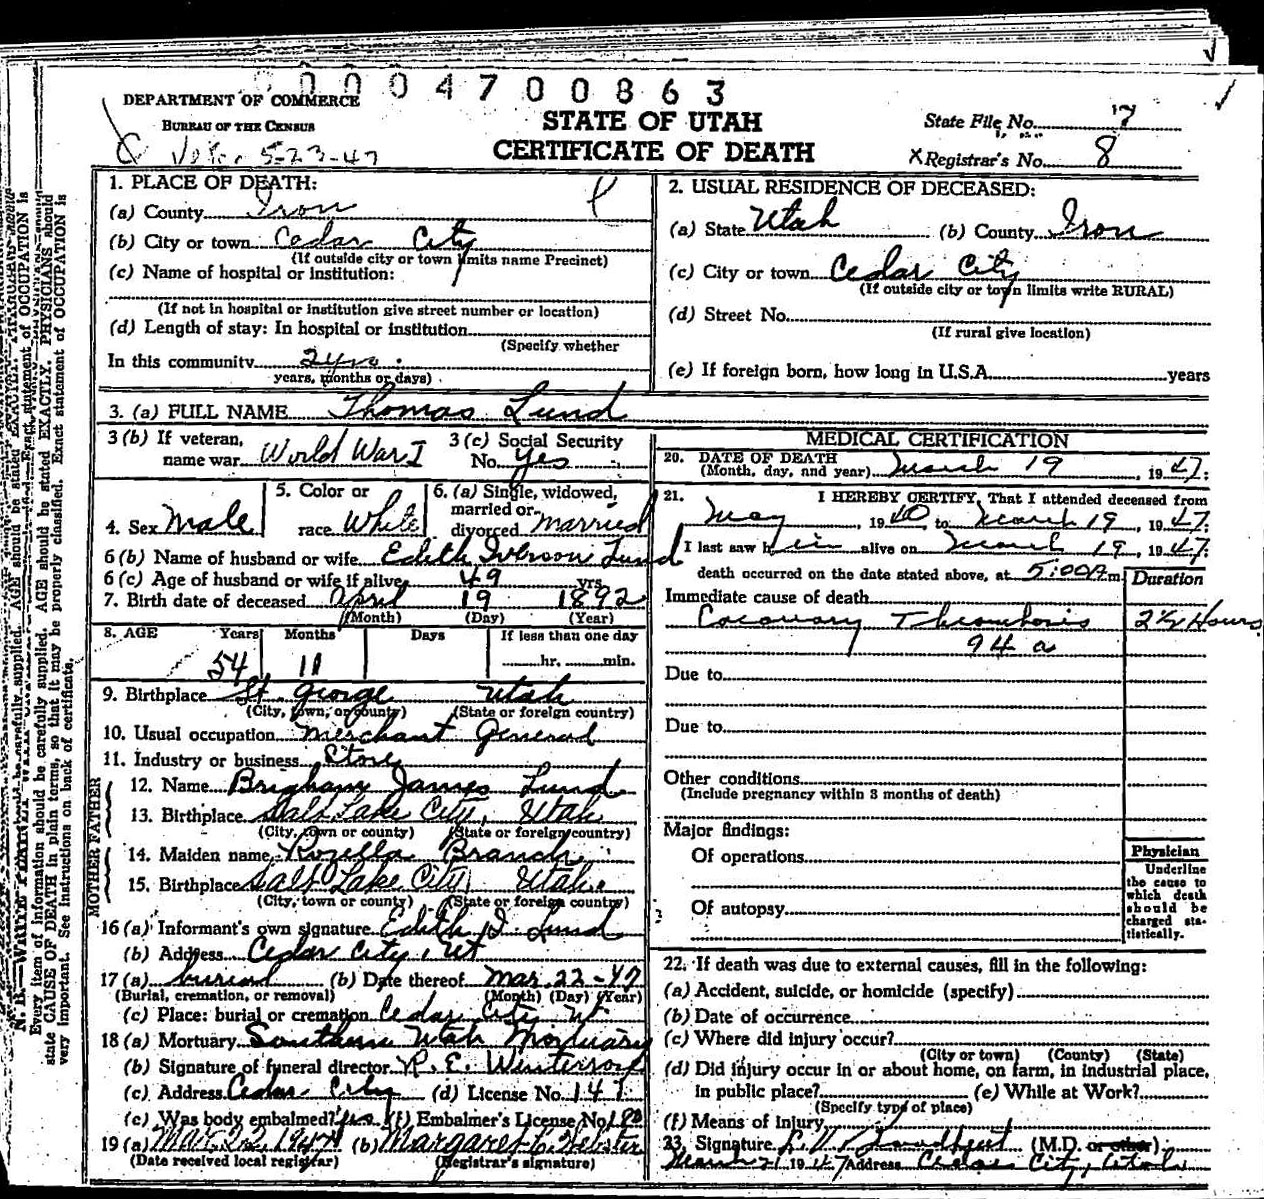 0004700863
DEPARTMENT OF COMMERCE
BUREAU OF THE CENSUS
5-23-47
STATE OF UTAH
CERTIFICATE OF DEATH
State File No. 7
X Registrar's No. 8
1. PLACE OF DEATH:
(a) County Iron
(b) City or town Cedar City
(If outside city or town limits name Precinct)
(c) Name of hospital or institution:
(If not in hospital or institution give street number or location)
(d) Length of stay: In hospital or institution
(Specify whether
In this community
years, months or days)
2. USUAL RESIDENCE OF DECEASED:
(a) State Utah (b) County Iron
(c) City or town Cedar City
(If outside city or town limits write RURAL)
(d) Street No.
(If rural give location)
(e) If foreign born, how long in U.S.A. years
3. (a) FULL NAME Thomas Lund
3 (b) If veteran, name war World War I
3 (c) Social Security No. yes
4. Sex Male
5. Color or race White
6. (a) Single, widowed, married or divorced Married
6 (b) Name of husband or wife Edith Iverson Lund
6 (c) Age of husband or wife if alive 49 yrs.
7. Birth date of deceased April 19 1892
(Month) (Day) (Year)
8. AGE Years Months Days If less than one day
54 11 hr. min.
9. Birthplace St. George Utah
(City, town, or county) (State or foreign country)
10. Usual occupation Merchant General
11. Industry or business Store
FATHER
12. Name Brigham James Lund
13. Birthplace Salt Lake City, Utah
(City, town or county) (State or foreign country)
MOTHER
14. Maiden name Rozella Branch
15. Birthplace Salt Lake City, Utah
(City, town or county) (State or foreign country)
16 (a) Informant's own signature Edith I. Lund
(b) Address Cedar City, Ut
17 (a) burial (b) Date thereof Mar. 22-47
(Burial, cremation, or removal) (Month) (Day) (Year)
(c) Place: burial or cremation Cedar City Ut
18 (a) Mortuary Southern Utah Mortuary
(b) Signature of funeral director R. E. Winterrose
(c) Address Cedar City (d) License No. 147
(e) Was body embalmed? Yes (f) Embalmer's License No. 180
19 (a) Mar. 22, 1947 (b) Margaret C. Webster
(Date received local registrar) (Registrar's signature)
MEDICAL CERTIFICATION
20. DATE OF DEATH
(Month, day, and year) March 19, 1947.
21. I HEREBY CERTIFY, That I attended deceased from
May, 1940 to March 19, 1947.
I last saw him alive on March 19, 1947.
death occurred on the date stated above, at 5:00 A.m.
Duration
Immediate cause of death
Coronary Thrombosis 2½ Hours
94 a
Due to
Due to
Other conditions
(Include pregnancy within 3 months of death)
Major findings:
Of operations
Of autopsy
Physician
Underline
the cause to
which death
should be
charged sta-
tistically.
22. If death was due to external causes, fill in the following:
(a) Accident, suicide, or homicide (specify)
(b) Date of occurrence
(c) Where did injury occur?
(City or town) (County) (State)
(d) Did injury occur in or about home, on farm, in industrial place,
in public place? (e) While at Work?
(Specify type of place)
(f) Means of Injury
23. Signature (M.D. or other)
March 21 1947 Address Cedar City, Utah
Every item of information should be carefully supplied. AGE should be stated EXACTLY. PHYSICIANS should
state CAUSE OF DEATH in plain terms, so that it may be properly classified. Exact statement of OCCUPATION is
very important. See instructions on back of certificate.